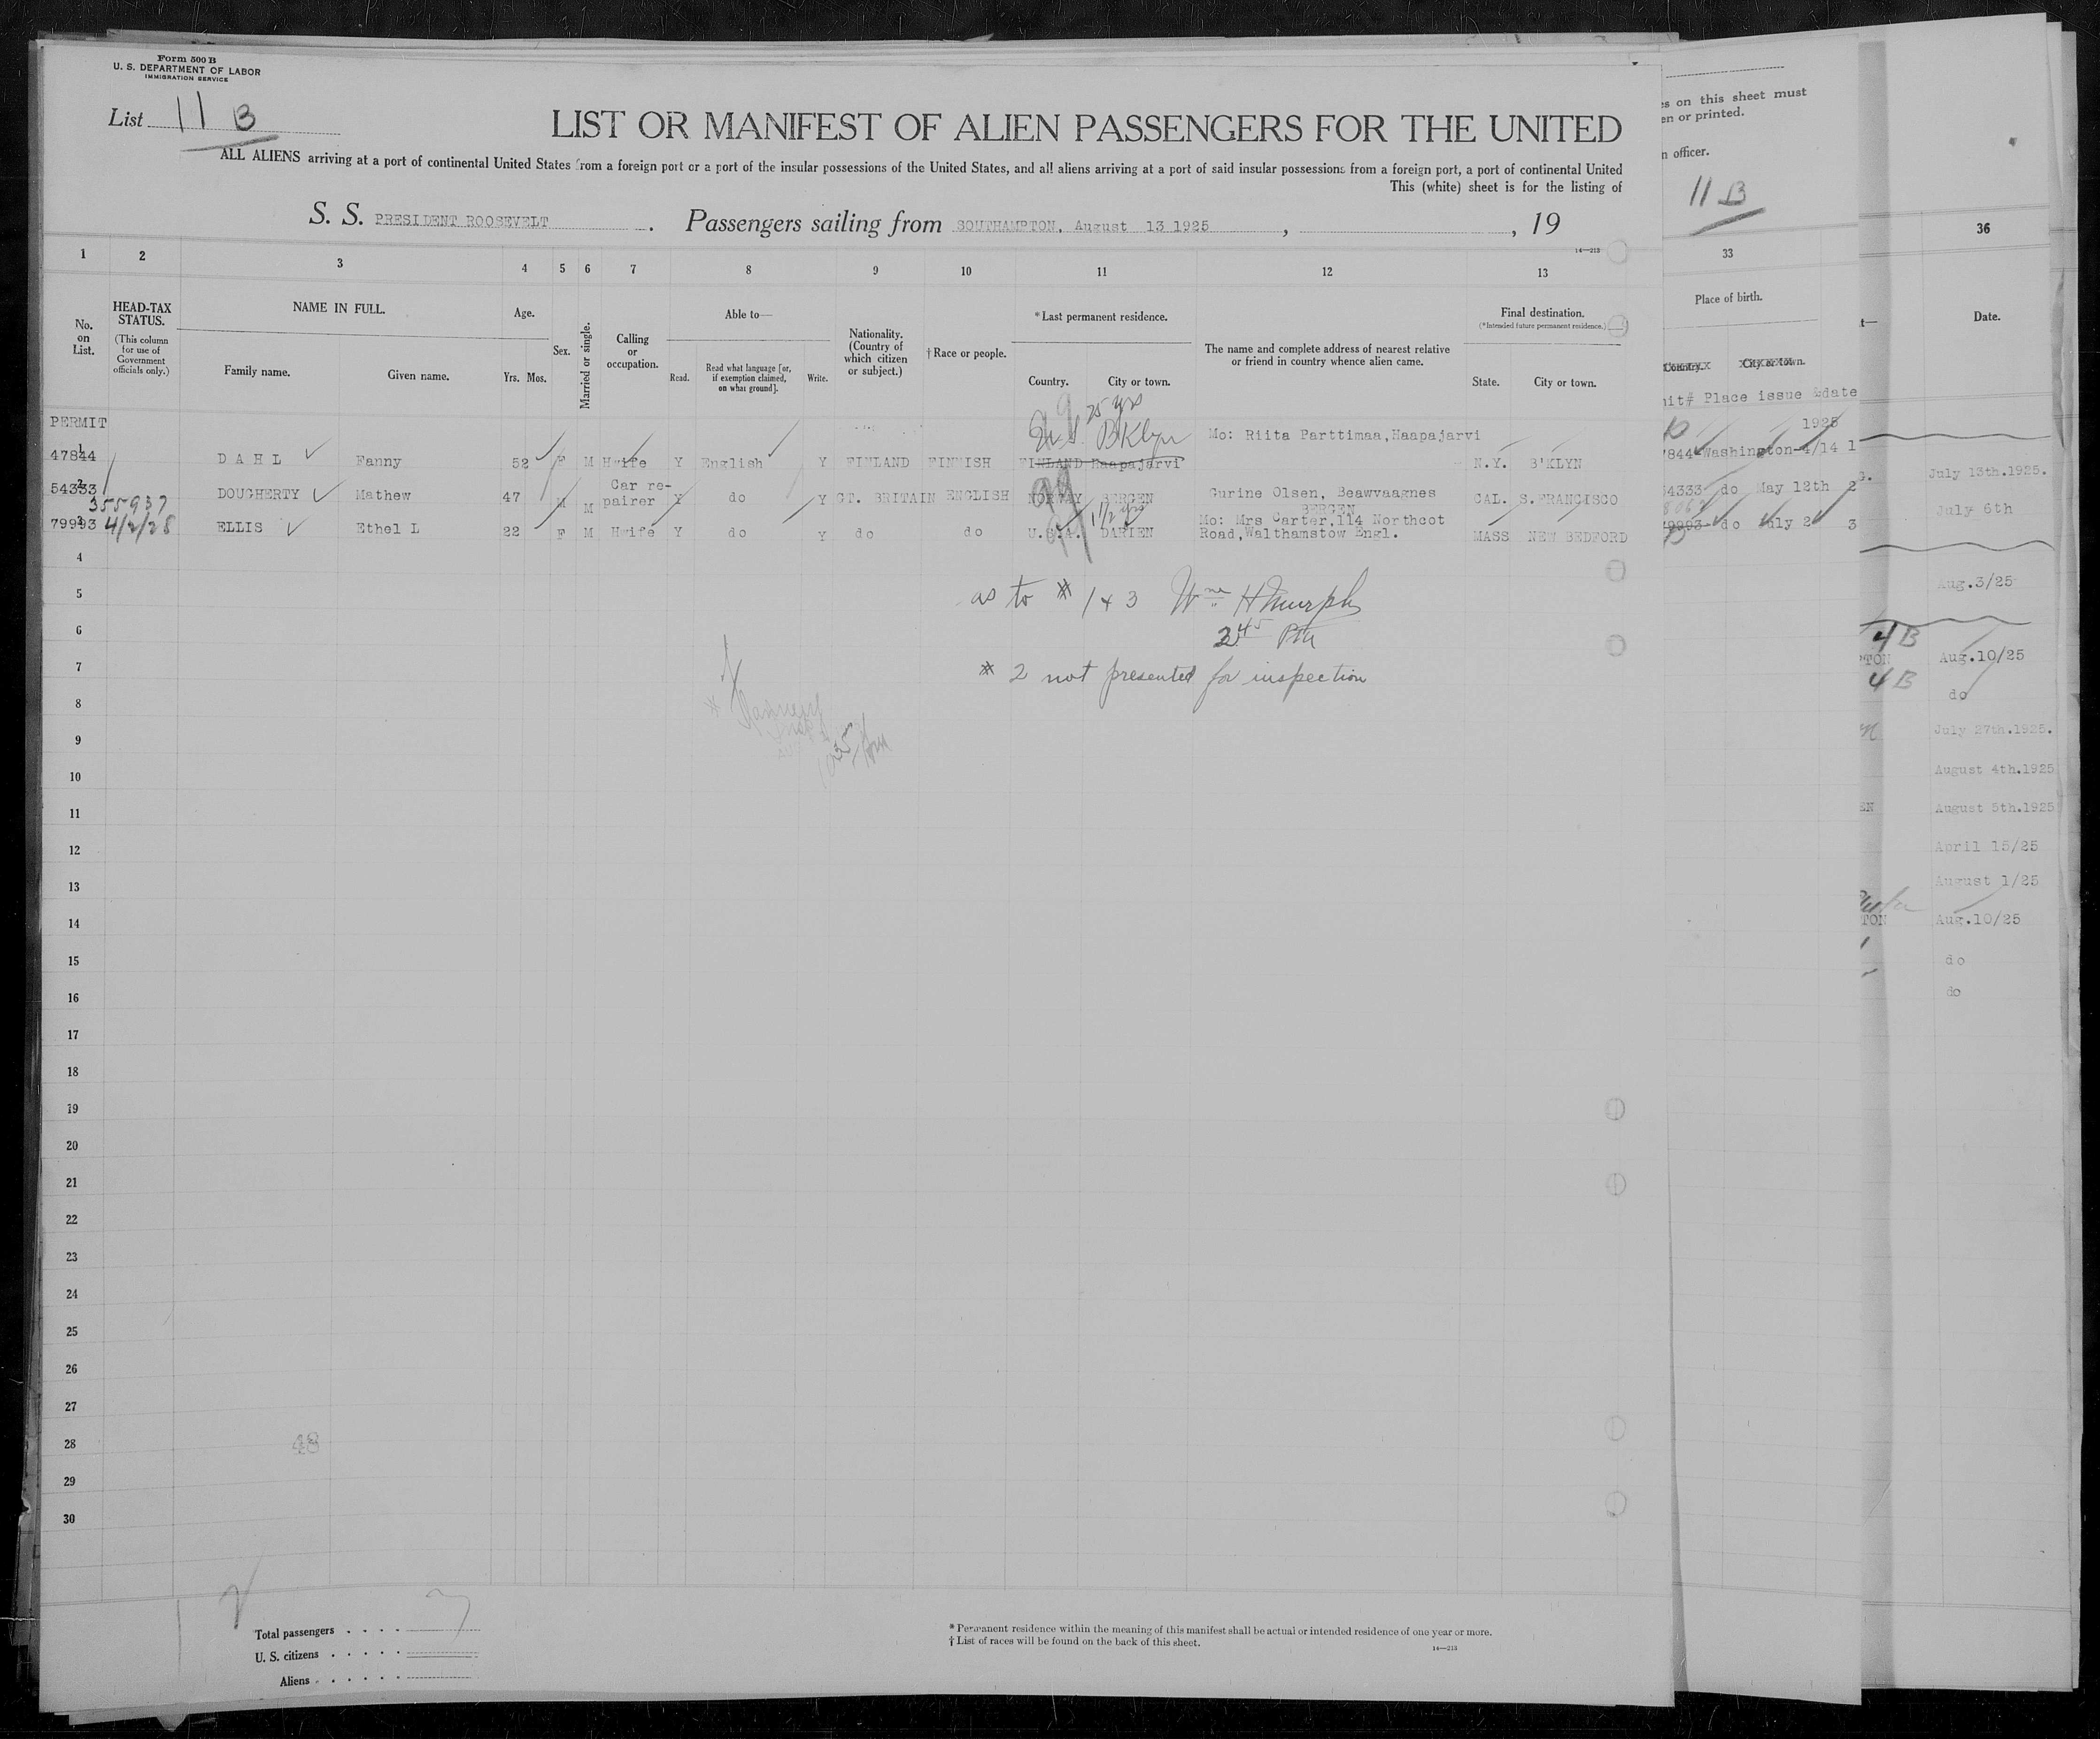 Form 500 B
U. S. DEPARTMENT OF LABOR
IMMIGRATION SERVICE
List 11 B
LIST OR MANIFEST OF ALIEN PASSENGERS FOR THE UNITED
ALL ALIENS arriving at a port of continental United States from a foreign port or a port of the insular possessions of the United States, and all aliens arriving at a port of said insular possessions from a foreign port, a port of continental United
This (white) sheet is for the listing of
S. S. PRESIDENT ROOSEVELT . Passengers sailing from SOUTHAMPTON, August 13 1925 , , 19
14—213
1 2 3 4 5 6 7 8 9 10 11 12 13
No. on List.
HEAD-TAX STATUS.
(This column for use of Government officials only.)
NAME IN FULL.
Family name. Given name.
Age.
Yrs. Mos.
Sex.
Married or single.
Calling or occupation.
Able to—
Read. Read what language [or, if exemption claimed, on what ground]. Write.
Nationality. (Country of which citizen or subject.)
†Race or people.
*Last permanent residence.
Country. City or town.
The name and complete address of nearest relative or friend in country whence alien came.
Final destination.
(*Intended future permanent residence.)
State. City or town.
PERMIT
25 yrs
B'Klyn
Mo: Riita Parttimaa, Haapajarvi
47844 1 DAHL Fanny 52 F M Hwife Y English Y FINLAND FINNISH FINLAND Haapajarvi N.Y. B'KLYN
54333 2 DOUGHERTY Mathew 47 M M Car re-pairer Y do Y GT. BRITAIN ENGLISH NORWAY BERGEN Gurine Olsen, Beawvaagnes BERGEN CAL. S.FRANCISCO
355937
4/2/28
1 1/2 yrs
79993 3 ELLIS Ethel L 22 F M Hwife Y do Y do do U.S.A. DARIEN Mo: Mrs Carter,114 Northcot Road,Walthamstow Engl. MASS NEW BEDFORD
4
5
6
7
8
9
10
11
12
13
14
15
16
17
18
19
20
21
22
23
24
25
26
27
28
29
30
as to # 1 & 3 Wm H Murphy
2 45 PM
# 2 not presented for inspection
48
Total passengers
U. S. citizens
Aliens
* Permanent residence within the meaning of this manifest shall be actual or intended residence of one year or more.
† List of races will be found on the back of this sheet.
14—213
es on this sheet must
en or printed.
n officer.
11 B
33
Place of birth.
Country. City or town.
mit# Place issue &date
1925
7844 Washington 4/14 1
54333 do May 12th 2
79993 do July 2 3
36
Date.
July 13th.1925.
July 6th
Aug.3/25
4 B
PTON Aug.10/25
4 B
do
July 27th.1925.
August 4th.1925
EN August 5th.1925
April 15/25
August 1/25
TON Aug.10/25
do
do